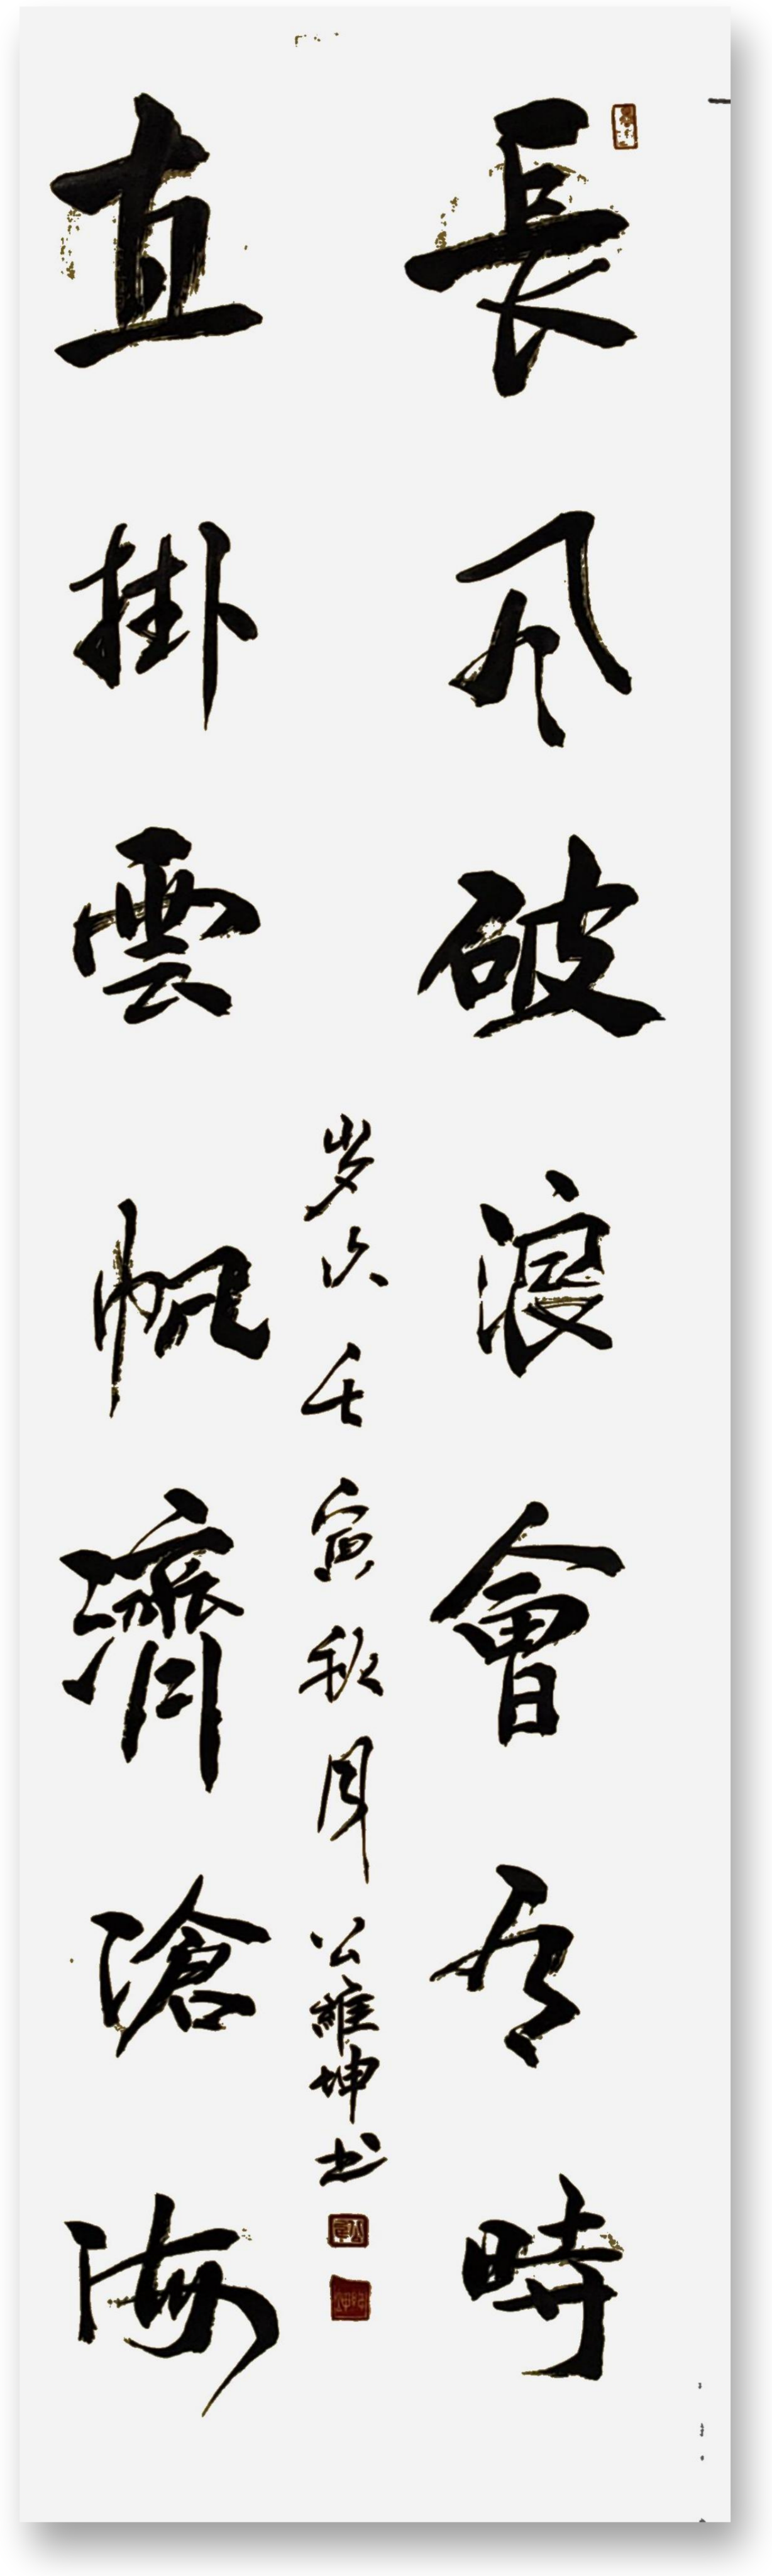 長風破浪會有時
直掛雲帆濟滄海
岁次壬寅秋月公維坤书